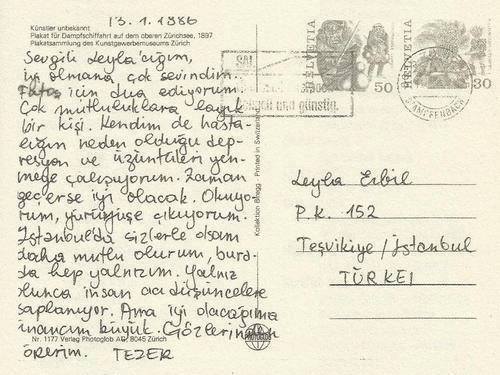 13.1.1986
Künstler unbekannt
Plakat für Dampfschiffahrt auf dem oberen Zürichsee, 1897
Plakatsammlung des Kunstgewerbemuseums Zürich
Sevgili Leyla'cığım,
iyi olmana çok sevindim.
için dua ediyorum.
Çok mutluluklara layık
bir kişi. Kendim de hasta-
lığın neden olduğu dep-
resyon ve üzüntüleri yen-
meğe çalışıyorum. Zaman
geçerse iyi olacak. Okuyo-
rum, yürüyüşe çıkıyorum.
İstanbul'da sizlerle olsam
daha mutlu olurum, bura-
da hep yalnızım. Yalnız
olunca insan acı düşüncelere
saplanıyor. Ama iyi olacağıma
inancım büyük. Gözlerinden
öperim. TEZER
Nr. 1177 Verlag Photoglob AG, 8045 Zürich
Kollektion Brügg - Printed in Switzerland
PHOTOGLOB
HELVETIA
50
HELVETIA
30
und günstig.
Leyla Erbil
P.K. 152
Teşvikiye/İstanbul
TÜRKEI